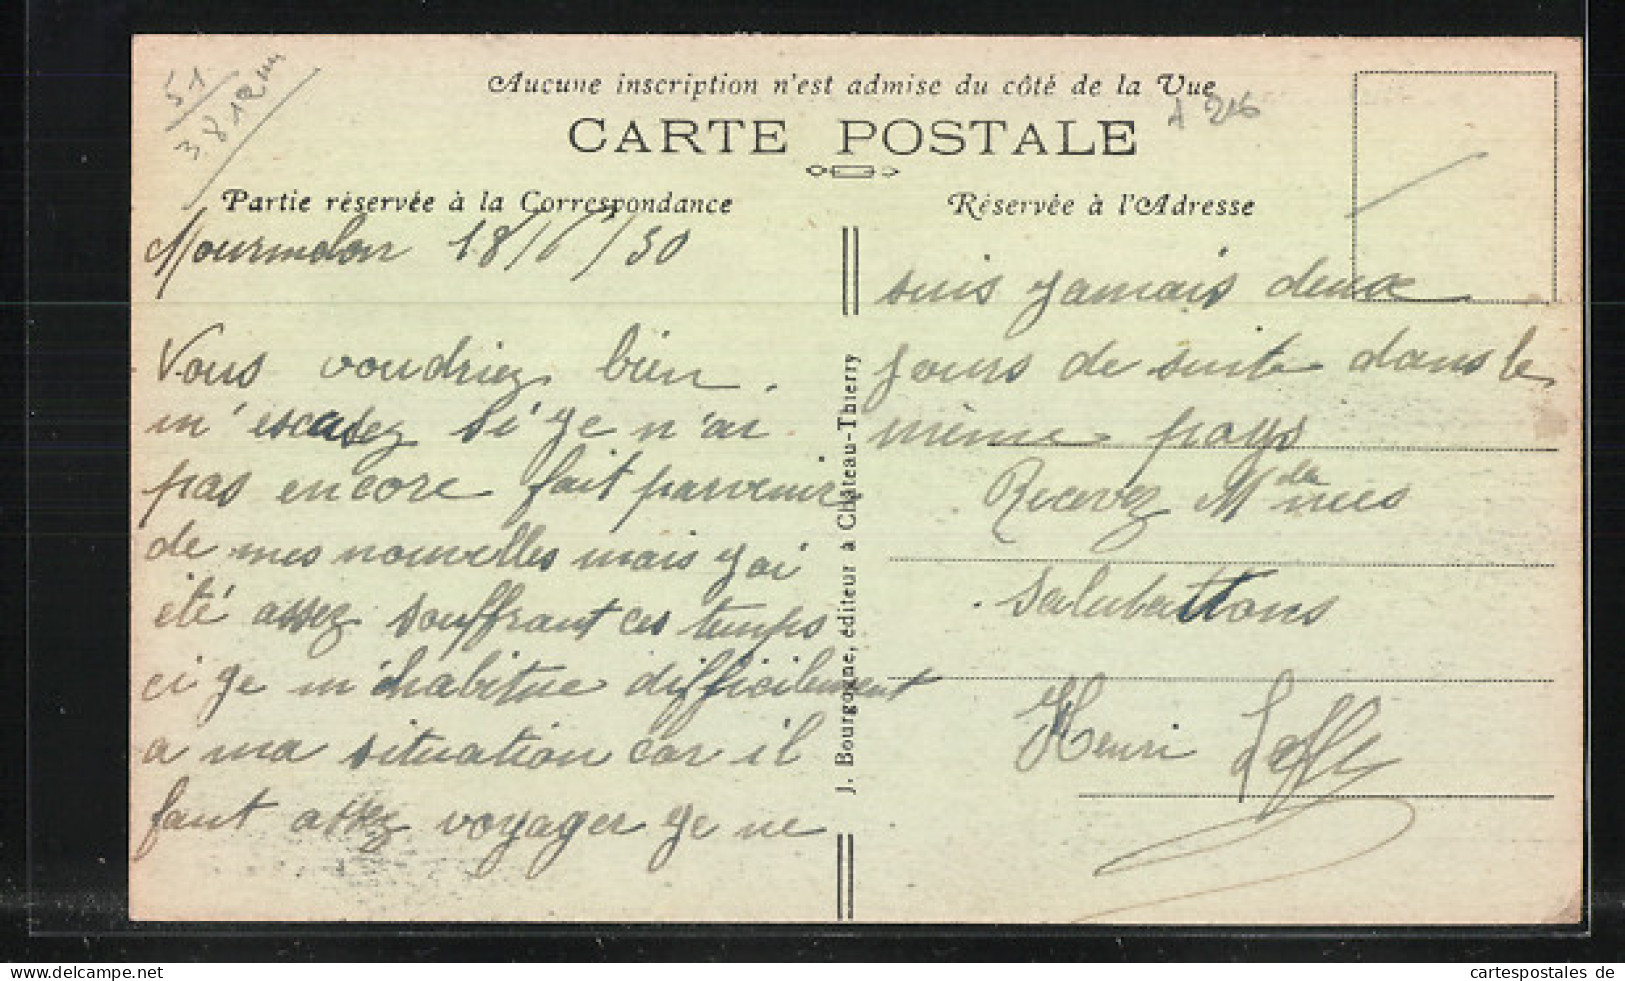 51
3.8.12
Aucune inscription n'est admise du côté de la Vue
A 216
CARTE POSTALE
Partie réservée à la Correspondance
Réservée à l'Adresse
Mourmelon 18/6/30
Vous voudriez bien
m'escusez si ge n'ai
pas encore fait parvenir
de mes nouvelles mais gai
été assez souffrant ces temps
ci ge m'habitue difficilement
a ma situation car il
faut assez voyager ge ne
suis gamais deux
jours de suite dans le
même pays
Recevez Mesda mes
Salutations
Henri
J. Bourgogne, éditeur à Château-Thierry
cartespostales de